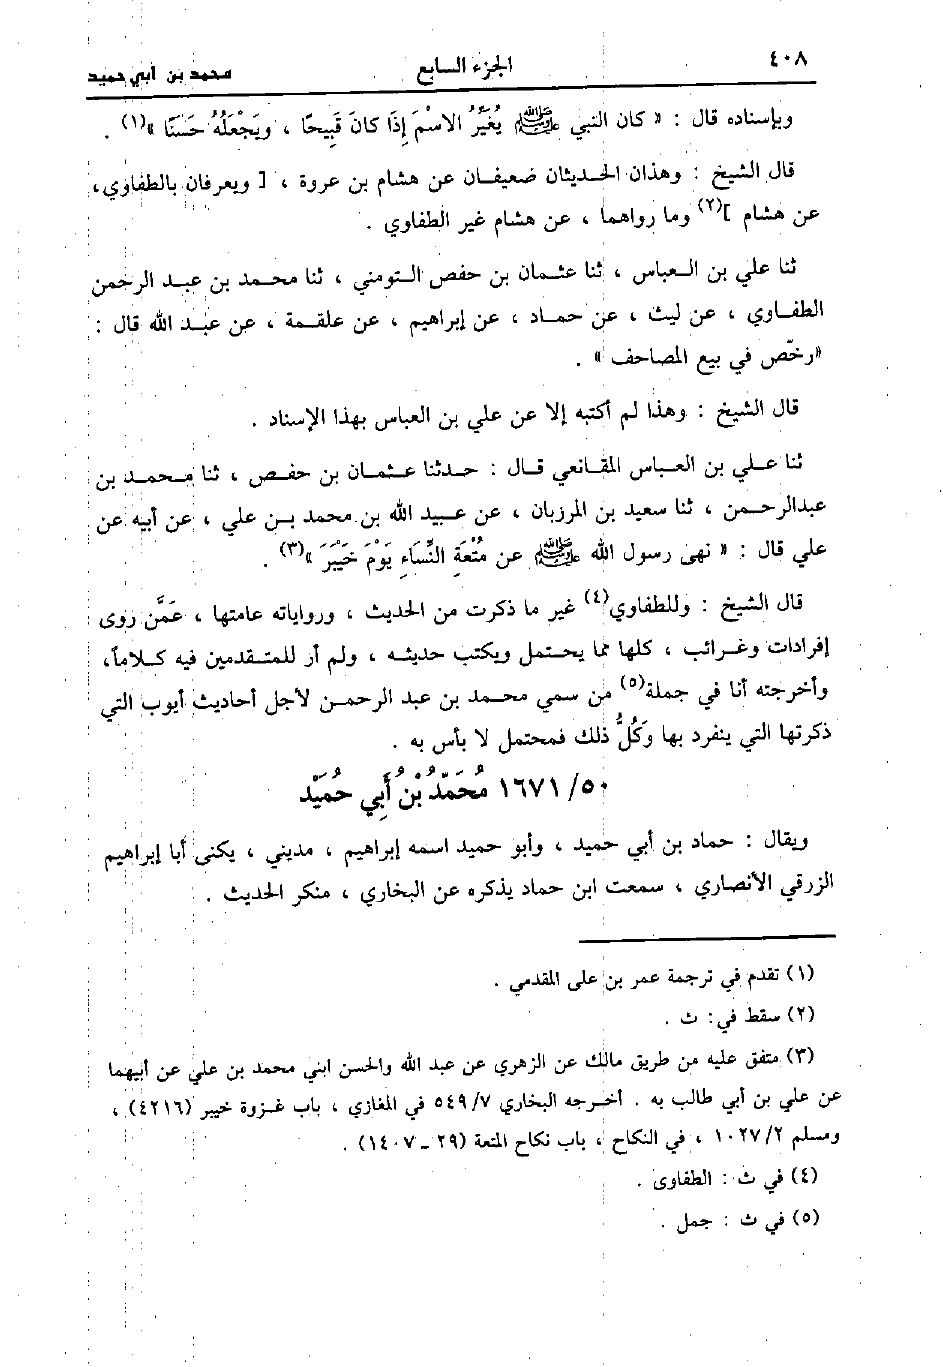 ٤٠٨ الجزء السابع محمد بن أبي حميد
وبإسناده قال : « كان النبي ﷺ يُغَيِّرُ الاسْمَ إِذَا كانَ قَبِيحًا ، ويَجْعَلُهُ حَسَنًا »(١) .
قال الشيخ : وهذان الحديثان ضعيفان عن هشام بن عروة ، [ ويعرفان بالطفاوي،
عن هشام ](٢) وما رواهما ، عن هشام غير الطفاوي .
ثنا علي بن العباس ، ثنا عثمان بن حفص التومني ، ثنا محمد بن عبد الرحمن
الطفاوي ، عن ليث ، عن حماد ، عن إبراهيم ، عن علقمة ، عن عبد الله قال :
«رخّص في بيع المصاحف » .
قال الشيخ : وهذا لم أكتبه إلا عن علي بن العباس بهذا الإسناد .
ثنا علي بن العباس المقانعي قال : حدثنا عثمان بن حفص ، ثنا محمد بن
عبدالرحمن ، ثنا سعيد بن المرزبان ، عن عبيد الله بن محمد بن علي ، عن أبيه عن
علي قال : « نهى رسول الله ﷺ عن مُتْعَةِ النِّسَاءِ يَوْمَ خَيْبَرَ »(٣) .
قال الشيخ : وللطفاوي(٤) غير ما ذكرت من الحديث ، ورواياته عامتها ، عَمَّن روى
إفرادات وغرائب ، كلها مما يحتمل ويكتب حديثه ، ولم أر للمتقدمين فيه كلاماً،
وأخرجته أنا في جملة(٥) من سمي محمد بن عبد الرحمن لأجل أحاديث أيوب التي
ذكرتها التي ينفرد بها وَكُلُّ ذلك فمحتمل لا بأس به .
١٦٧١/٥٠ مُحَمَّدُ بْنُ أَبِي حُمَيْد
ويقال : حماد بن أبي حميد ، وأبو حميد اسمه إبراهيم ، مديني ، يكنى أبا إبراهيم
الزرقي الأنصاري ، سمعت ابن حماد يذكره عن البخاري ، منكر الحديث .
(١) تقدم في ترجمة عمر بن على المقدمي .
(٢) سقط في: ث .
(٣) متفق عليه من طريق مالك عن الزهري عن عبد الله والحسن ابني محمد بن علي عن أبيهما
عن علي بن أبي طالب به . أخرجه البخاري ٥٤٩/٧ في المغازي ، باب غزوة خيبر (٤٢١٦) ،
ومسلم ١٠٢٧/٢ ، في النكاح ، باب نكاح المتعة (٢٩ ـ ١٤٠٧) .
(٤) في ث : الطفاوى .
(٥) في ث : جمل .